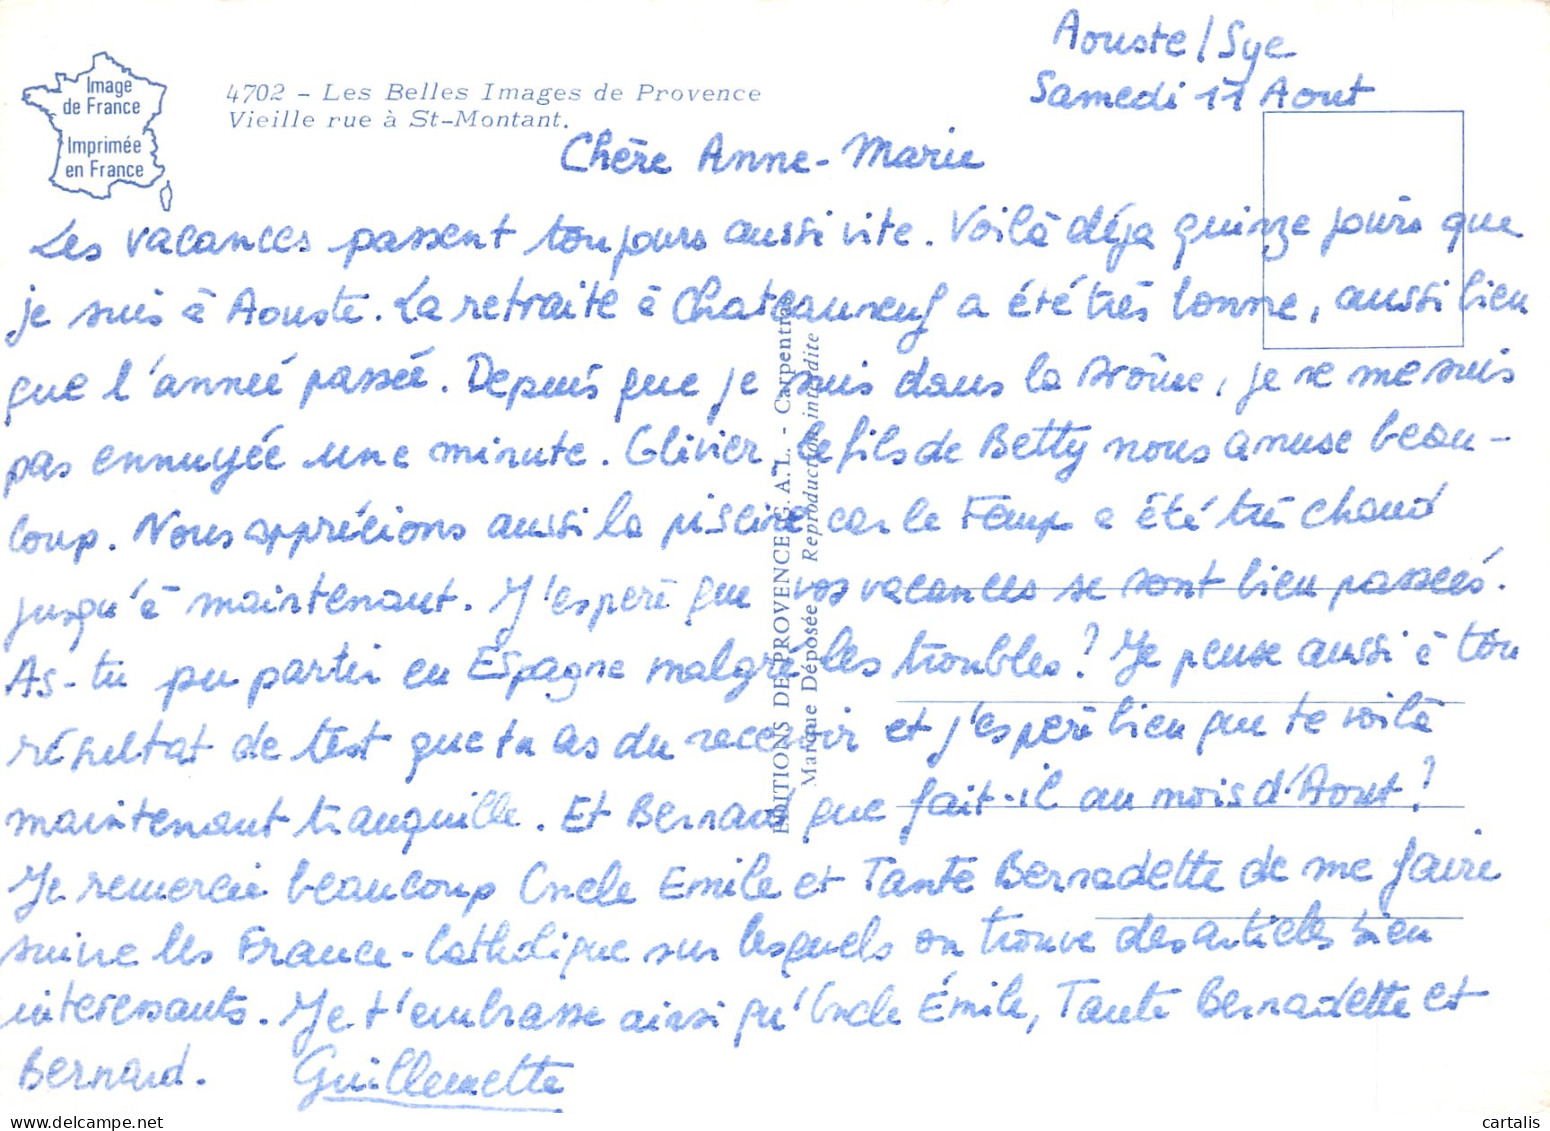 Aouste/Sye
Samedi 11 Aout
Image
de France
Imprimée
en France
4702 - Les Belles Images de Provence
Vieille rue à St-Montant.
Chère Anne-Marie
Les vacances passent toujours aussi vite. Voilà déja quinze jours que
je suis à Aouste. La retraite à Chateauneuf a été très bonne, aussi bien
que l'année passée. Depuis que je suis dans la Drôme, je ne me suis
pas ennuyée une minute. Olivier, le fils de Betty nous amuse beau-
coup. Nous apprécions aussi la piscine car le temps a été très chaud
jusqu'à maintenant. J'espère que vos vacances se sont bien passées.
As-tu pu partir en Espagne malgré les troubles? Je pense aussi à ton
résultat de test que tu as du recevoir et j'espère bien que te voilà
maintenant tranquille. Et Bernard que fait-il au mois d'Aout?
Je remercie beaucoup Oncle Emile et Tante Bernadette de me faire
suivre les France-Catholique sur lesquels on trouve des articles bien
interessants. Je t'embrasse ainsi qu'Oncle Émile, Tante Bernadette et
Bernard. Guillemette
EDITIONS DE PROVENCE S.A.L. - Carpentras
Marque Déposée Reproduction interdite
cartalis